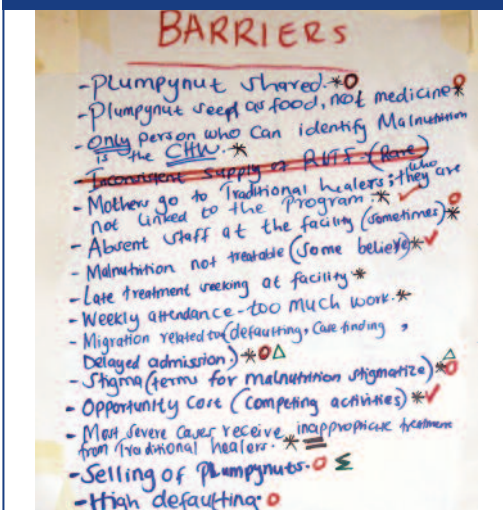 BARRIERS
- Plumpynut shared.
- Plumpynut seen as food, not medicine
- Only person who can identify Malnutrition
is the CHW.
- Inconsistent supply of RUTF. (Rare)
- Mothers go to Traditional healers; who they are
not linked to the program.
- Absent staff at the facility (sometimes)
- Malnutrition not treatable (some believe)
- Late treatment seeking at facility
- Weekly attendance - too much work.
- Migration related to (defaulting, Case finding,
Delayed admission)
- Stigma (terms for malnutrition stigmatize)
- Opportunity Cost (competing activities)
- Most severe cases receive inappropriate treatment
from Traditional healers.
- Selling of Plumpynuts.
- High defaulting.